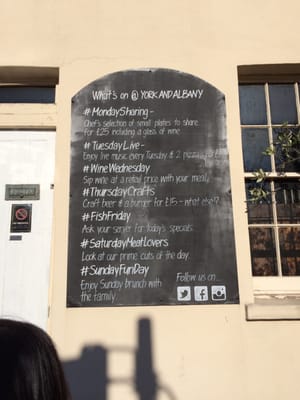 What's on @ YORKANDALBANY
#MondaySharing -
Chef's selection of small plates to share
for £25 including a glass of wine
#TuesdayLive -
Enjoy live music every Tuesday & 2 pizzas
#WineWednesday
Sip wine at a retail price with your meal
#ThursdayCrafts
Craft beer & a burger for £15 - what else!?
#FishFriday
Ask your server for today's specials
#SaturdayMeatLovers
Look at our prime cuts of the day
#SundayFunDay
Enjoy Sunday brunch with
the family
Follow us on...